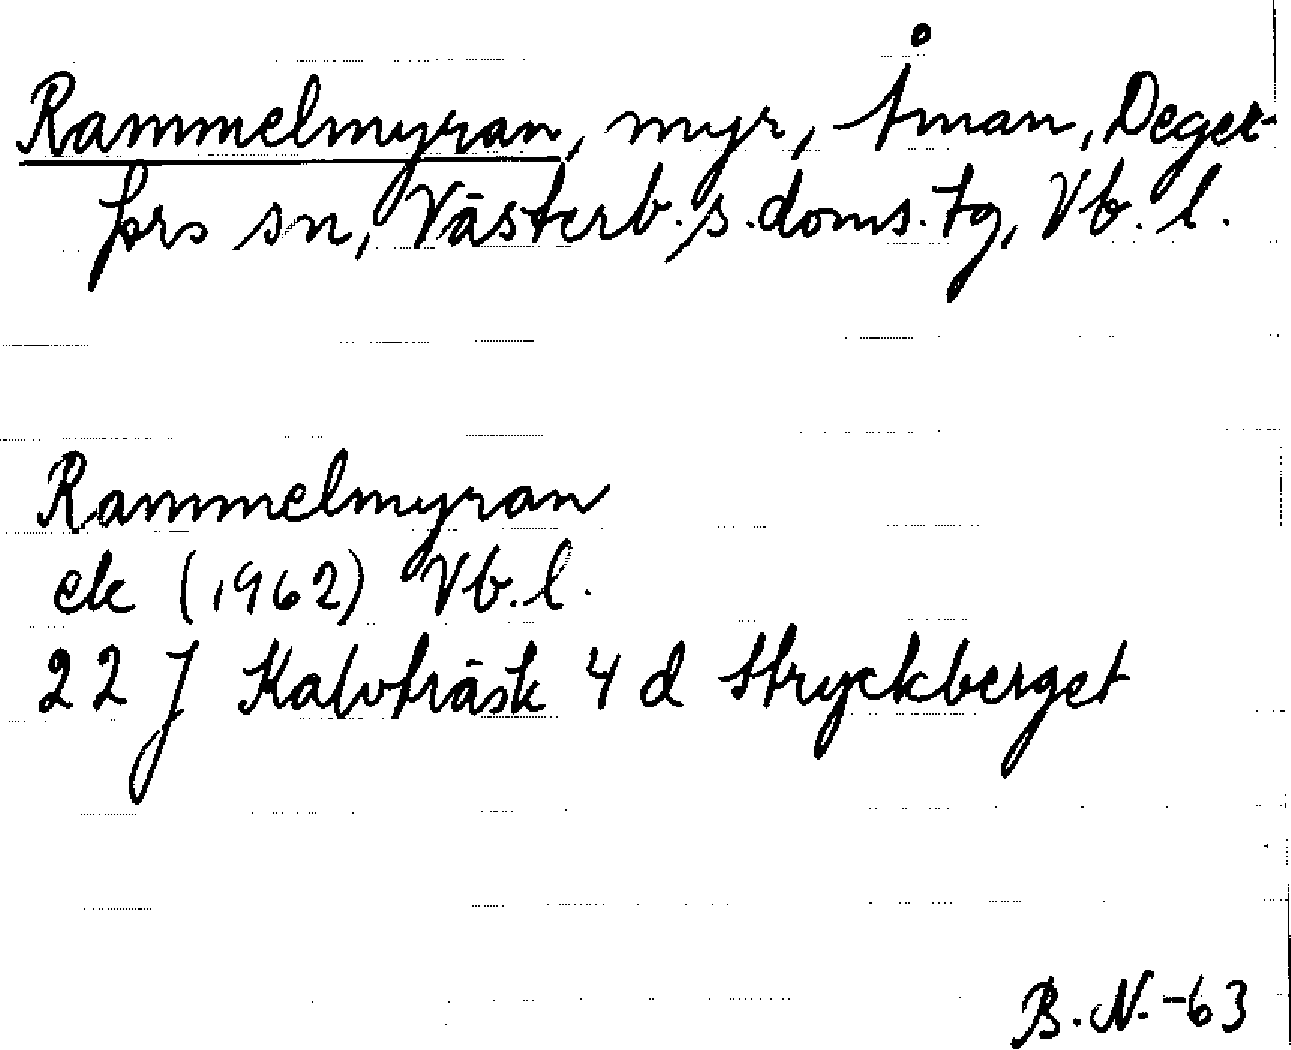 Rammelmyran, myr, Åman, Deger-
fors sn, Västerb. s. doms. tg, Vb. l.
Rammelmyran
ek (1962) Vb. l.
22 J Kalvträsk 4 d Stryckberget
B. N. -63